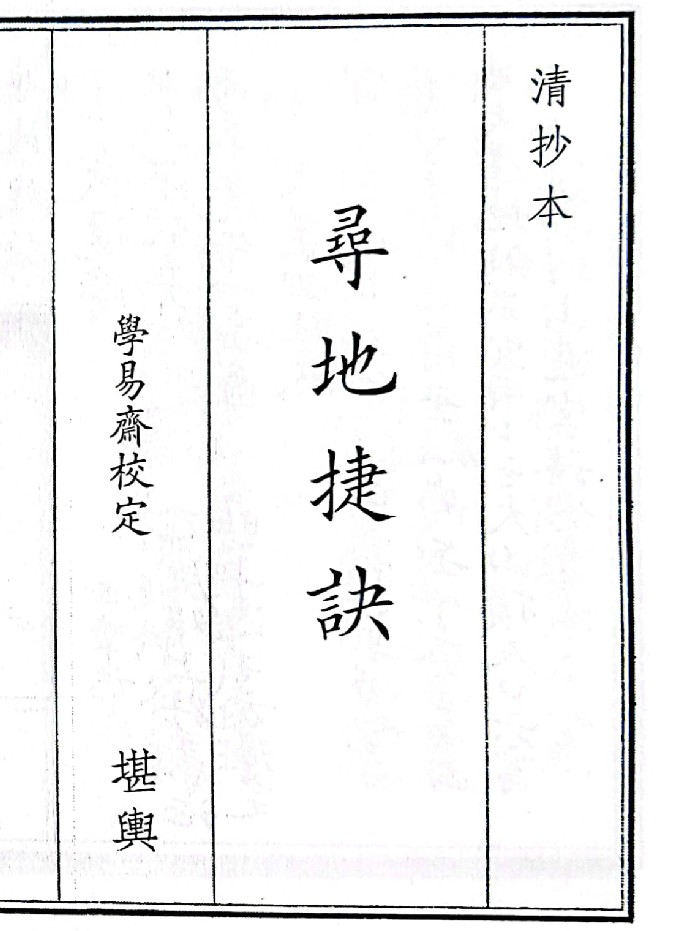 清抄本
尋地捷訣
學易齋校定
堪輿